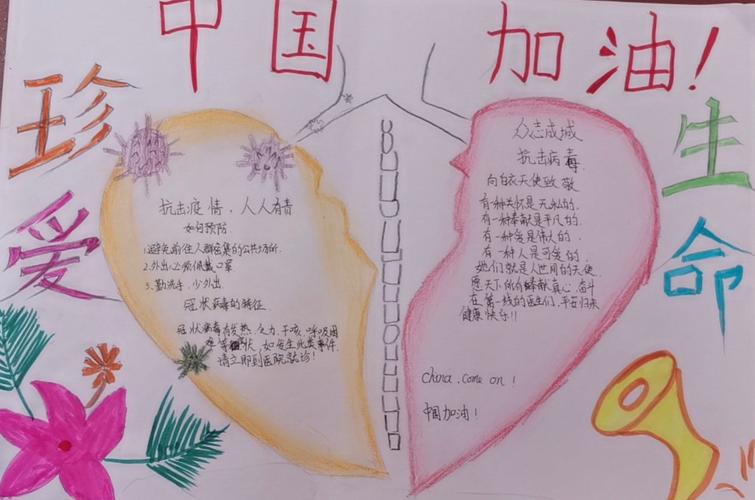 中国加油！
珍爱
生命
抗击疫情，人人有责
如何预防
1.避免前往人群密集的公共场所.
2.外出必须佩戴口罩
3.勤洗手，少外出
冠状病毒的特征
冠状病毒有发热，乏力，干咳，呼吸困
难等症状，如发生此类事件.
请立即到医院就诊！
众志成城
抗击病毒
向白衣天使致敬
有一种关怀是无私的.
有一种奉献是平凡的.
有一种爱是伟大的.
有一种人是可爱的.
她们就是人世间的天使
愿天下所有奉献真心，奋斗
在第一线的医生们，平安归来
健康快乐!!
china.come on！
中国加油！